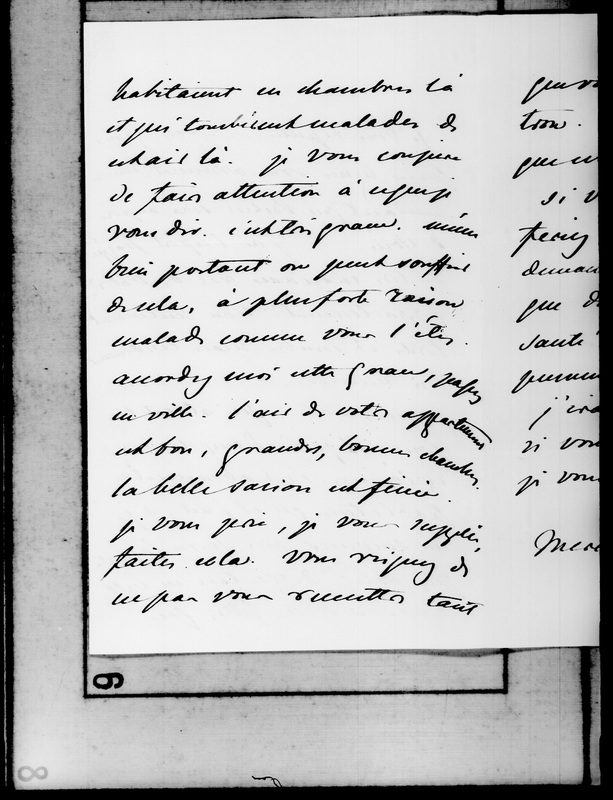 habitaient en chambres là
et qui tombèrent malades de
cet air là. je vous conjure
de faire attention à ce que je
vous dis. c'est très grave. même
bien portant on peut souffrir
de cela, à plus forte raison
malade comme vous l'êtes.
accordez moi cette grace,
en ville. l'air de votre appartement
est bon, grandes, bonnes chambres.
la belle saison est finie.
je vous prie, je vous supplie,
faites cela. vous risquez de
ne pas vous remettre tant
que
si v
que d
santé
j'irai
si vous
je vous
9
8